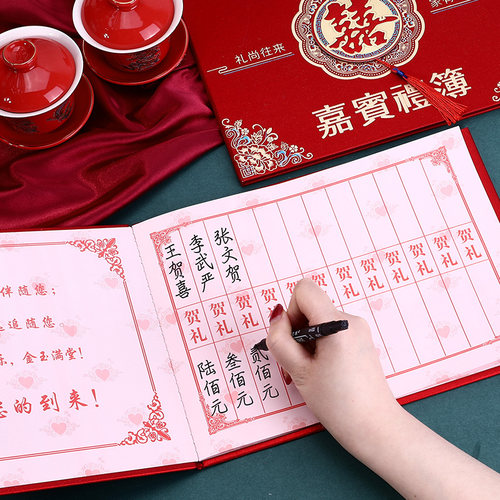 礼尚往来
囍
嘉賓禮簿
伴随您；
追随您
乐，金玉满堂！
的到来！
王贺喜
李武严
张文贺
贺礼
贺礼
贺礼
贺礼
贺礼
贺礼
贺礼
贺礼
贺礼
贺礼
贺礼
陆佰元
叁佰元
贰佰元